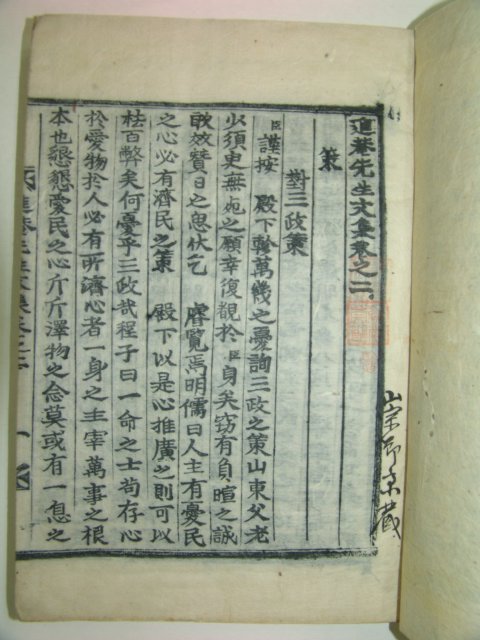 進菴先生文集卷之二
策
對三政策
臣謹按 殿下軫萬幾之憂詢三政之策山東父老
必須臾無死之願幸復覩於臣身矣窃有負暄之誠
敢效贊日之思伏乞 睿覧焉明儒曰人主有憂民
之心必有濟民之策 殿下以是心推廣之則可以
祛百弊矣何憂乎三政哉程子曰一命之士苟存心
於愛物於人必有所濟心者一身之主宰萬事之根
本也懇懇愛民之心斤斤澤物之念莫或有一息之
先生文集卷之二
一